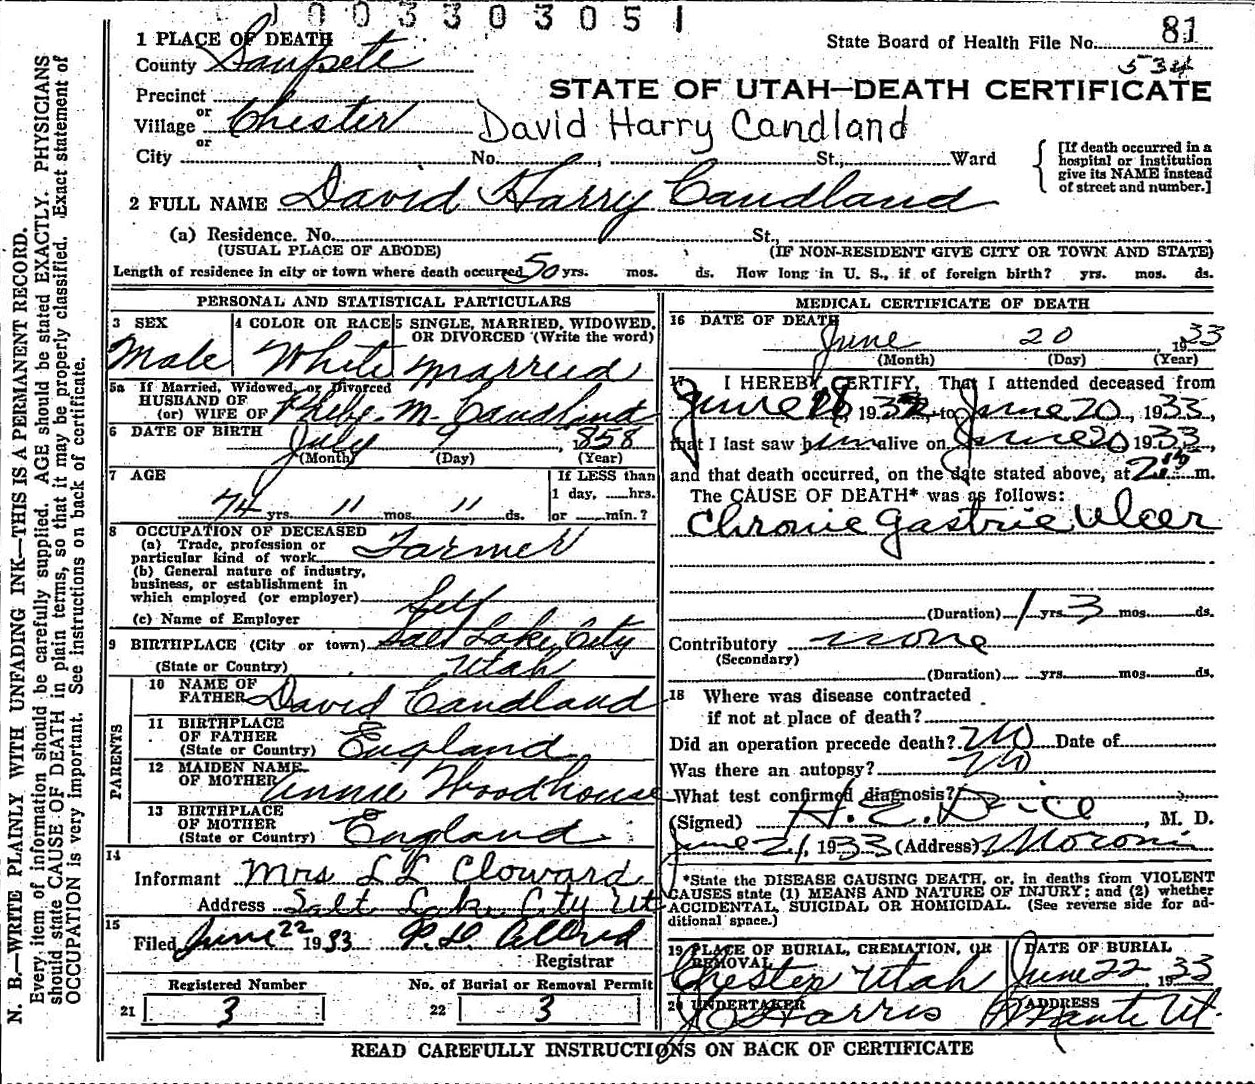 1003303051
1 PLACE OF DEATH
State Board of Health File No. 81
County Sanpete
534
Precinct
STATE OF UTAH—DEATH CERTIFICATE
or
Village Chester
David Harry Candland
or
City No. , St., Ward
[If death occurred in a hospital or institution give its NAME instead of street and number.]
2 FULL NAME David Harry Candland
(a) Residence. No. St.,
(USUAL PLACE OF ABODE) (IF NON-RESIDENT GIVE CITY OR TOWN AND STATE)
Length of residence in city or town where death occurred 50 yrs. mos. ds. How long in U. S., if of foreign birth? yrs. mos. ds.
PERSONAL AND STATISTICAL PARTICULARS
3 SEX
Male
4 COLOR OR RACE
White
5 SINGLE, MARRIED, WIDOWED, OR DIVORCED (Write the word)
Married
5a If Married, Widowed, or Divorced
HUSBAND OF
(or) WIFE OF Phebe M. Candland
6 DATE OF BIRTH July 9, 1858
(Month) (Day) (Year)
7 AGE
74 yrs. 11 mos. 11 ds.
If LESS than
1 day, hrs.
or min.?
8 OCCUPATION OF DECEASED
(a) Trade, profession or
particular kind of work Farmer
(b) General nature of industry,
business, or establishment in
which employed (or employer)
(c) Name of Employer Self
9 BIRTHPLACE (City or town) Salt Lake City
(State or Country) Utah
PARENTS
10 NAME OF
FATHER David Candland
11 BIRTHPLACE
OF FATHER
(State or Country) England
12 MAIDEN NAME
OF MOTHER Annie Woodhouse
13 BIRTHPLACE
OF MOTHER
(State or Country) England
14
Informant Mrs L L Cloward
Address Salt Lake City Ut
15
Filed June 22 1933 P. D. Allred
Registrar
Registered Number
21 3
No. of Burial or Removal Permit
22 3
MEDICAL CERTIFICATE OF DEATH
16 DATE OF DEATH
June 20 1933
(Month) (Day) (Year)
17 I HEREBY CERTIFY, That I attended deceased from
June, 193, to June 20, 1933,
that I last saw him alive on June 20 1933,
and that death occurred, on the date stated above, at 2:15 m.
The CAUSE OF DEATH* was as follows:
Chronic Gastric Ulcer
(Duration) 1 yrs. 3 mos. ds.
Contributory none
(Secondary)
(Duration) yrs. mos. ds.
18 Where was disease contracted
if not at place of death?
Did an operation precede death? No Date of
Was there an autopsy? No
What test confirmed diagnosis?
(Signed) H. E. Dice, M. D.
June 21, 1933 (Address) Moroni
*State the DISEASE CAUSING DEATH, or, in deaths from VIOLENT
CAUSES state (1) MEANS AND NATURE OF INJURY; and (2) whether
ACCIDENTAL, SUICIDAL OR HOMICIDAL. (See reverse side for ad-
ditional space.)
19 PLACE OF BURIAL, CREMATION, OR REMOVAL
Chester Utah
DATE OF BURIAL
June 22 1933
20 UNDERTAKER
Harris
ADDRESS
Manti Ut.
READ CAREFULLY INSTRUCTIONS ON BACK OF CERTIFICATE
N. B.—WRITE PLAINLY WITH UNFADING INK—THIS IS A PERMANENT RECORD.
Every item of information should be carefully supplied. AGE should be stated EXACTLY. PHYSICIANS
should state CAUSE OF DEATH in plain terms, so that it may be properly classified. Exact statement of
OCCUPATION is very important. See instructions on back of certificate.